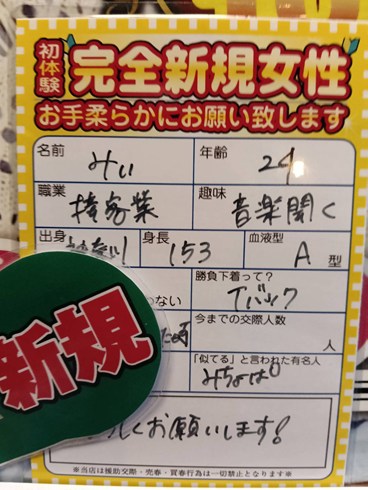 初体験
完全新規女性
お手柔らかにお願い致します
名前 みい 年齢 24
職業 接客業 趣味 音楽聞く
出身 神奈川 身長 153 血液型 A型
勝負下着って?
わない Tバック
今までの交際人数
人
「似てる」と言われた有名人
みちょぱ
新規
しくお願いします!
※当店は援助交際・売春・買春行為は一切禁止となります※